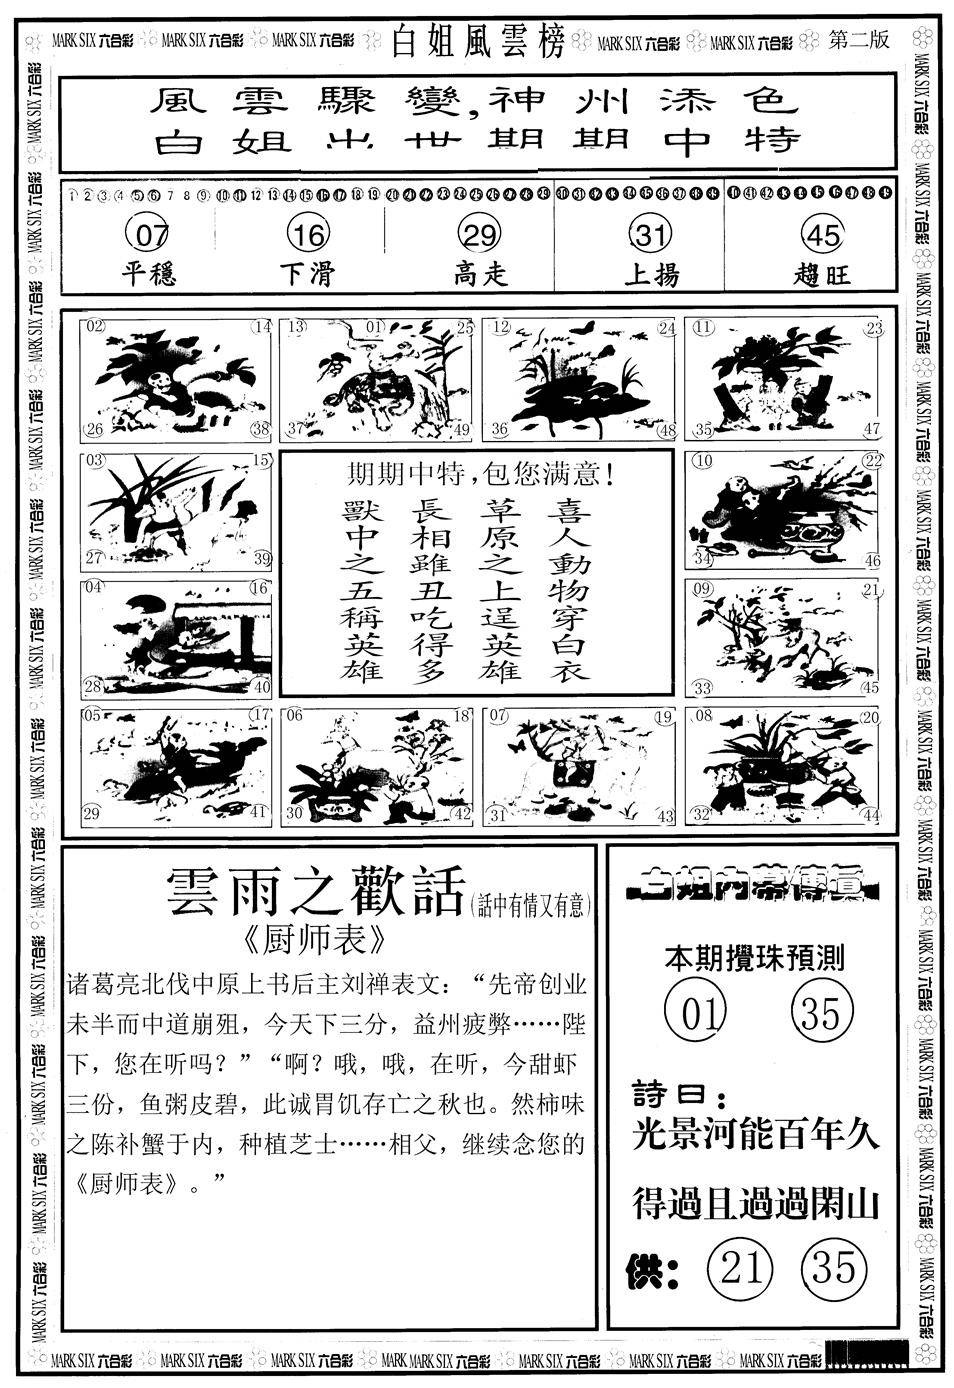 MARK SIX 六合彩 MARK SIX 六合彩 MARK SIX 六合彩 白姐風雲榜 MARK SIX 六合彩 MARK SIX 六合彩 第二版
風雲驟變,神州添色
白姐出世期期中特
1 2 3 4 5 6 7 8 9 10 11 12 13 14 15 16 17 18 19 20 21 22 23 24 25 26 27 28 29 30 31 32 33 34 35 36 37 38 39 40 41 42 43 44 45 46 47 48 49
07 16 29 31 45
平穩 下滑 高走 上揚 趨旺
02 14 13 01 25 12 24 11 23
26 38 37 49 36 48 35 47
03 15
27 39
04 16
28 40
期期中特,包您满意!
喜人動物穿白衣
草原之上逞英雄
長相雖丑吃得多
獸中之五稱英雄
10 22
34 46
09 21
33 45
05 17 06 18 07 19 08 20
29 41 30 42 31 43 32 44
雲雨之歡話(話中有情又有意)
《厨师表》
诸葛亮北伐中原上书后主刘禅表文：“先帝创业
未半而中道崩殂，今天下三分，益州疲弊……陛
下，您在听吗？”“啊？哦，哦，在听，今甜虾
三份，鱼粥皮碧，此诚胃饥存亡之秋也。然柿味
之陈补蟹于内，种植芝士……相父，继续念您的
《厨师表》。”
白姐内幕傳真
本期攪珠預測
01 35
詩曰:
光景河能百年久
得過且過過閑山
供: 21 35
MARK SIX 六合彩 MARK SIX 六合彩 MARK SIX 六合彩 MARK MARK SIX 六合彩 MARK SIX 六合彩 MARK SIX 六合彩 MARK SIX 六合彩